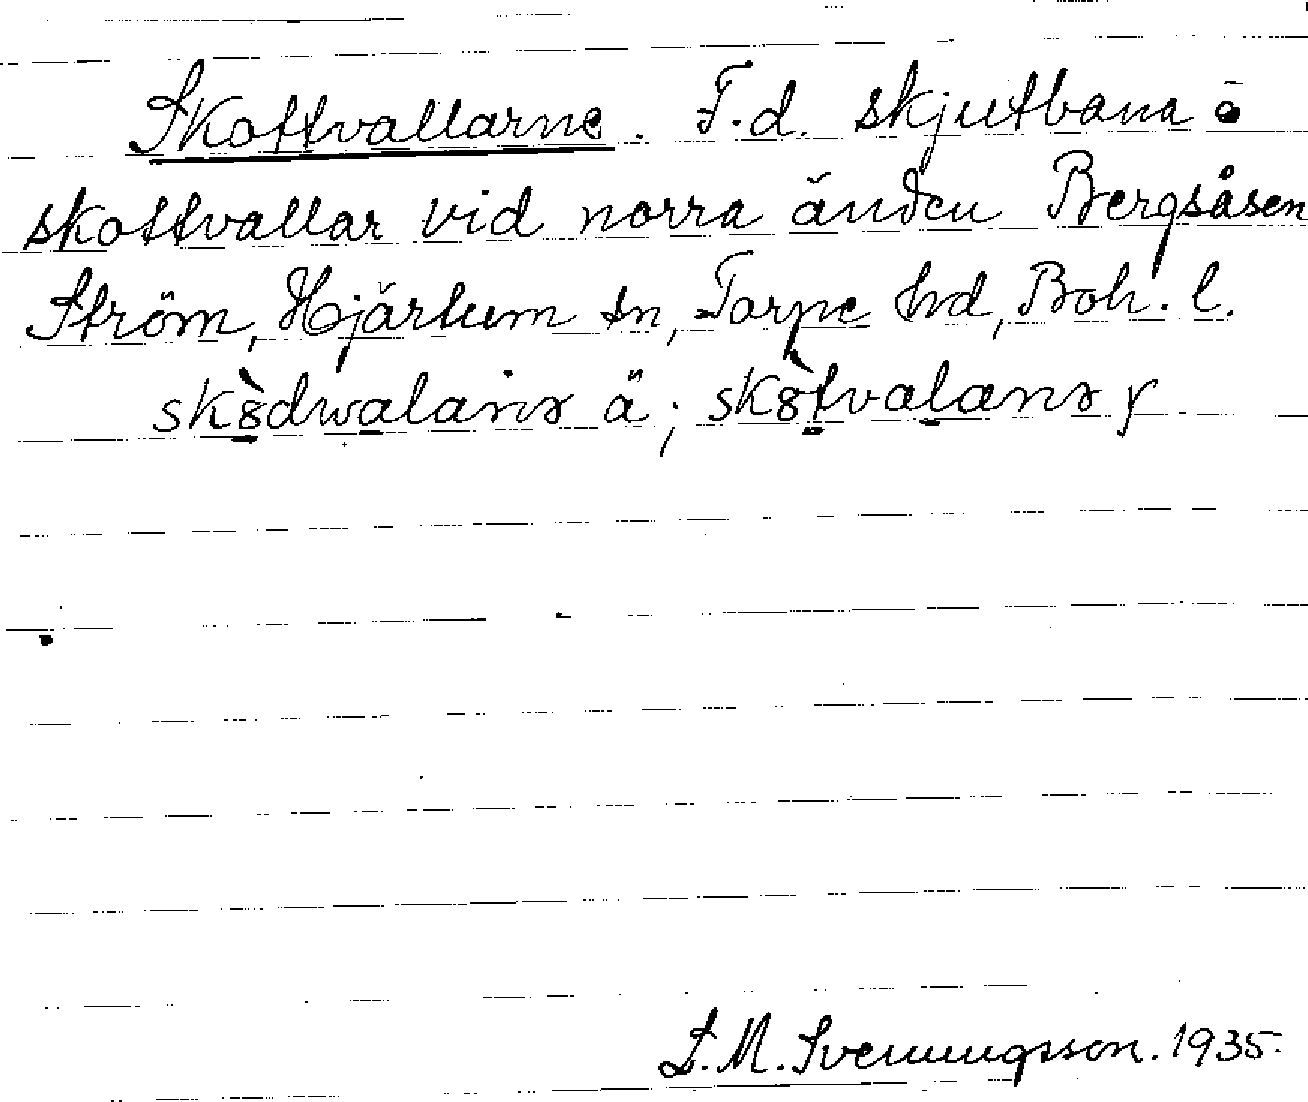 Skottvallarne. F.d. skjutbana o
skottvallar vid norra änden Bergsåsen
Ström, Hjärtum sn, Torpe hd, Boh. l.
skòdwalanɤ ä; skòtvalanɤ y
S. M. Svenungsson. 1935.